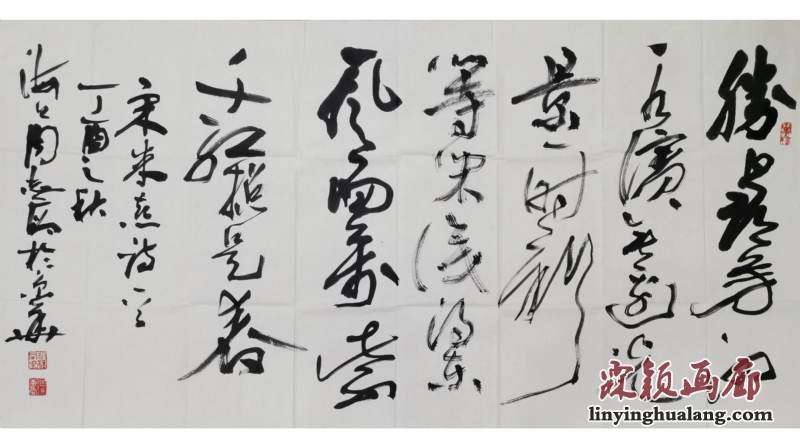 胜日寻芳泗
水滨无边光
景一时新
等闲识得东
风面万紫
千红总是春
宋朱熹诗一首
丁酉之秋
海上周志高於京华
霖颖画廊
linyinghualang.com